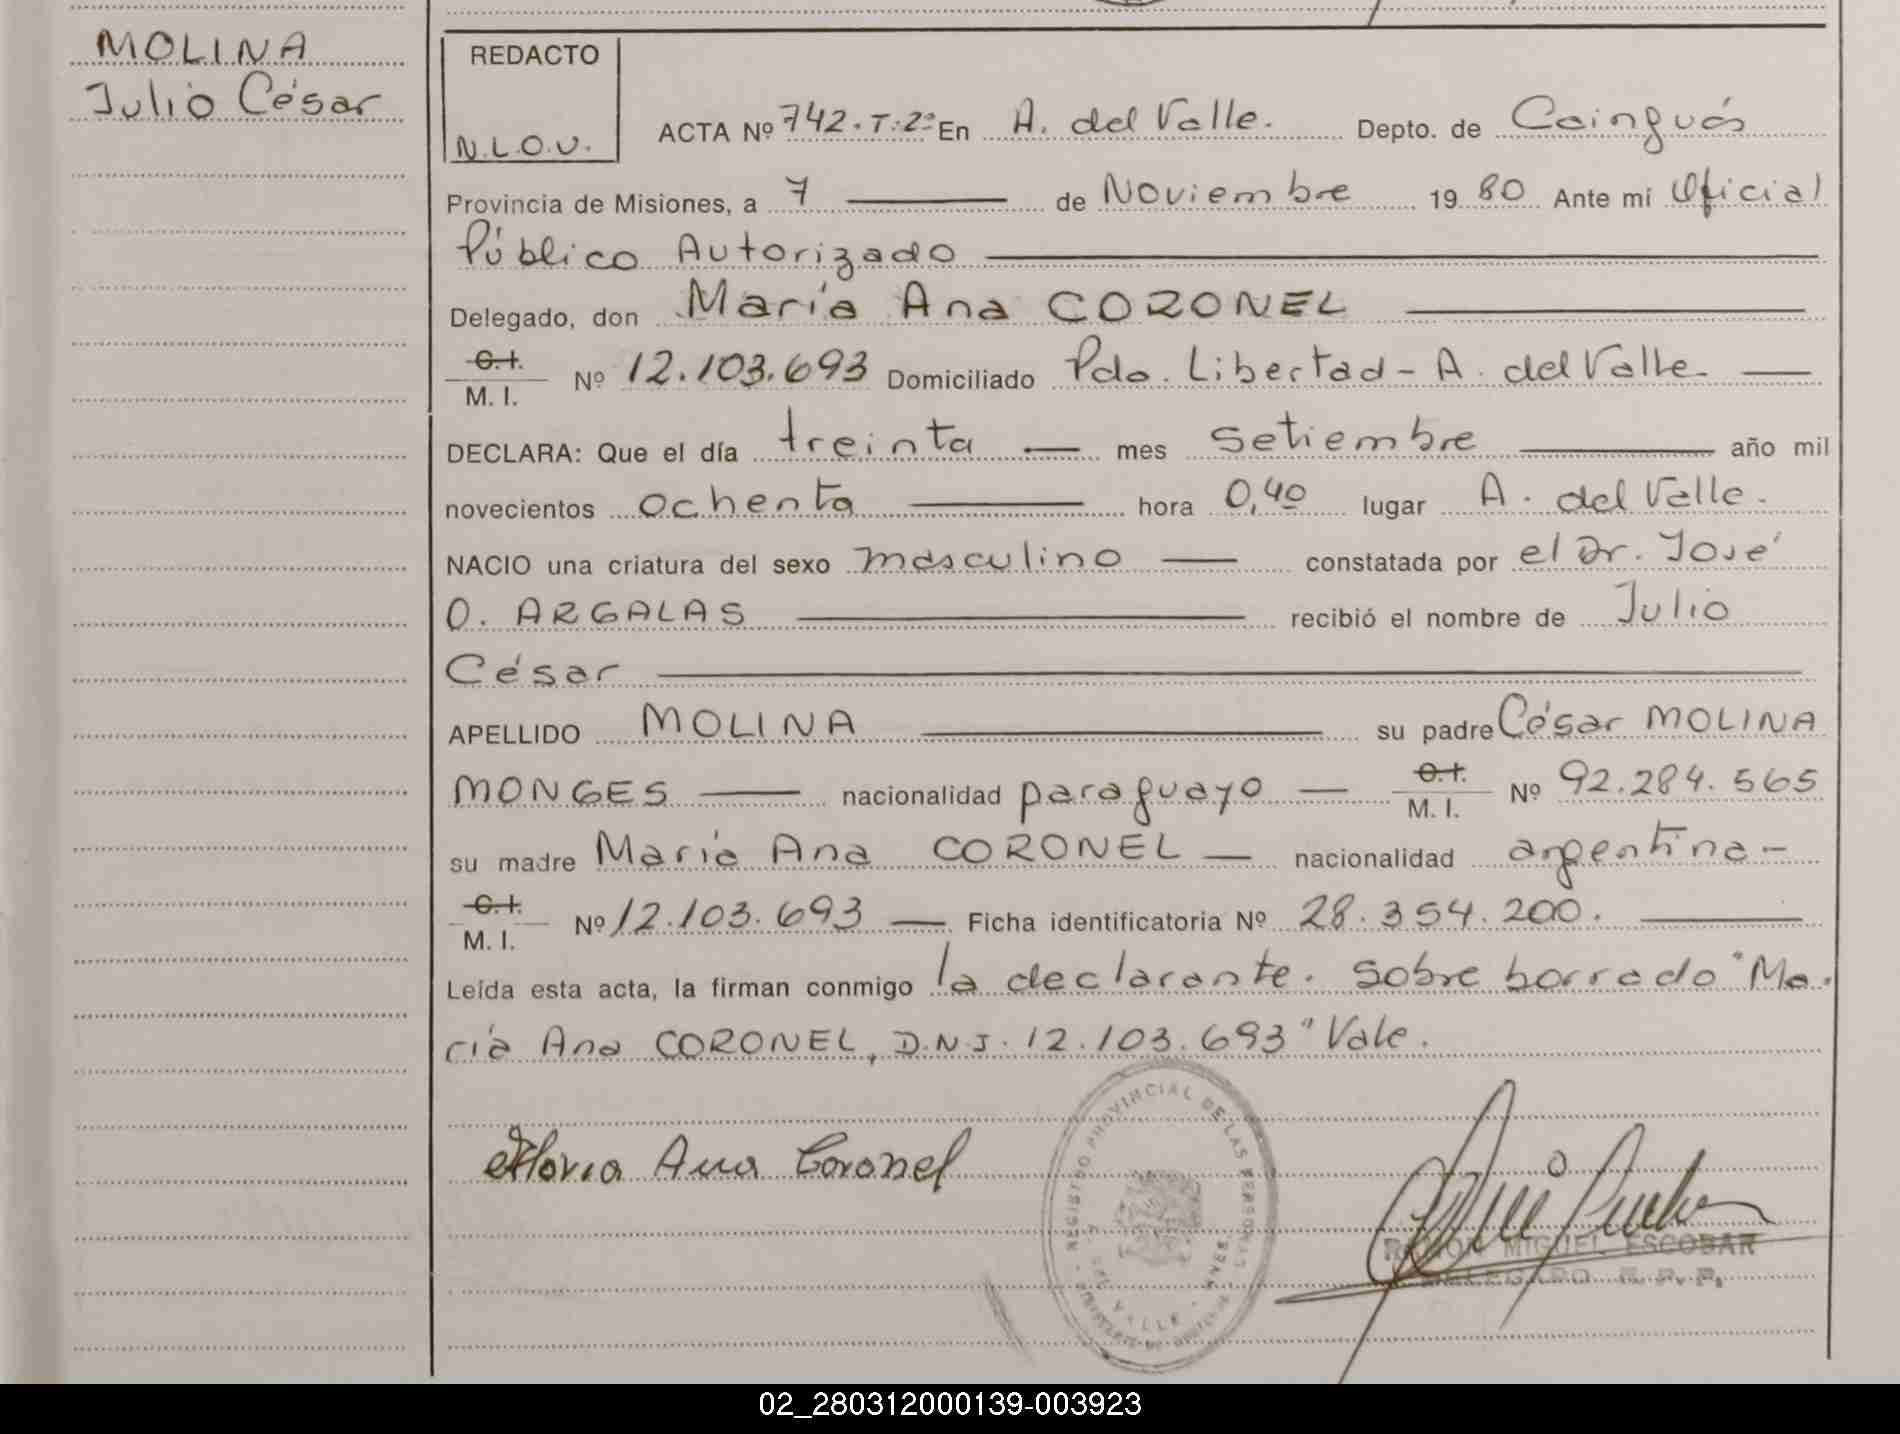 MOLINA
Julio César
REDACTO
N.L.O.V.
ACTA Nº 742.T:2º En A. del Valle. Depto. de Cainguás
Provincia de Misiones, a 7 de Noviembre 19 80 Ante mi Oficial
Público Autorizado
Delegado, don María Ana CORONEL
C.I.
M. I. Nº 12.103.693 Domiciliado Pdo. Libertad - A. del Valle
DECLARA: Que el día treinta mes setiembre año mil
novecientos ochenta hora 0,40 lugar A. del Valle.
NACIO una criatura del sexo masculino constatada por el Dr. José
O. ARGALAS recibió el nombre de Julio
César
APELLIDO MOLINA su padre César MOLINA
MONGES nacionalidad paraguayo C.I. M. I. Nº 92.284.565
su madre María Ana CORONEL nacionalidad argentina -
C.I.
M. I. Nº 12.103.693 Ficha identificatoria Nº 28.354.200.
Leída esta acta, la firman conmigo la declarante. Sobre borrado "Ma.
ría Ana CORONEL, D.N.I. 12.103.693" Vale.
María Ana Coronel
REGISTRO PROVINCIAL DE LAS PERSONAS
DEL VALLE
RAMON MIGUEL ESCOBAR
DELEGADO R. P. P.
02_280312000139-003923